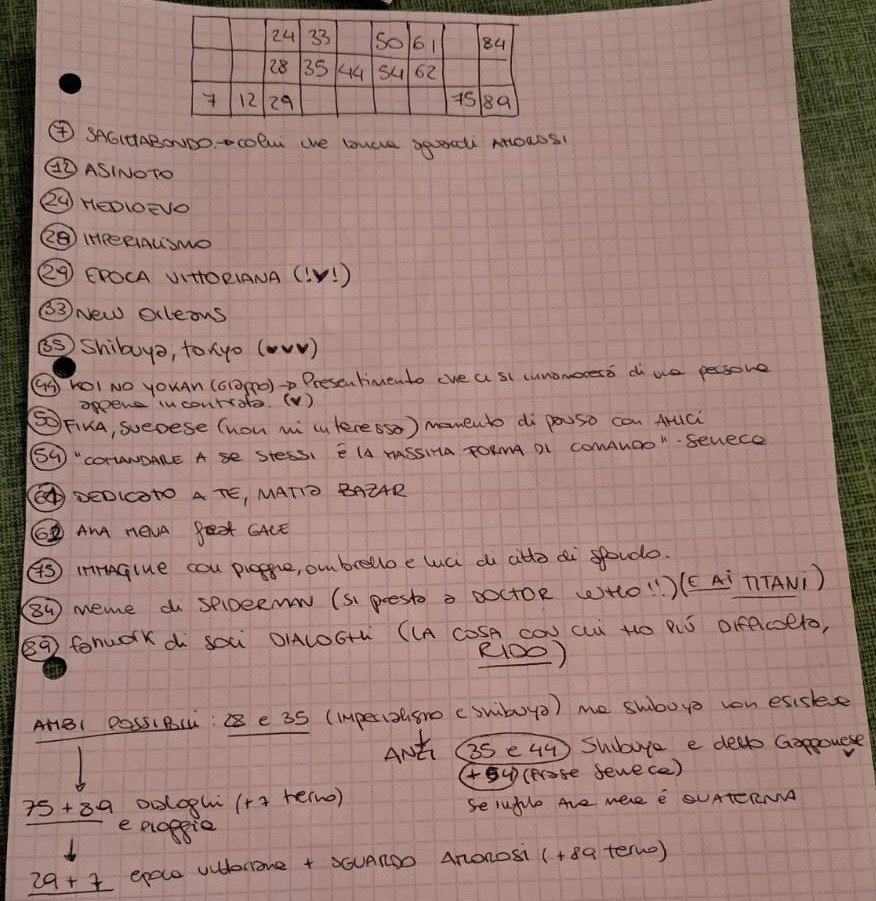 24 33 50 61 84
28 35 44 54 62
7 12 29 75 89
7 SAGITTABONDO → colui che lancia sguardi AMOROSI
12 ASINOTO
24 MEDIOEVO
28 IMPERIALISMO
29 EPOCA VITTORIANA (!♥!)
33 New Orleans
35 Shibuya, tokyo (♥♥♥)
44 KOI NO YOKAN (Giappo) → Presentimento che ci si innamorerà di una persona
appena incontrata. (♥)
50 FIKA, SVEDESE (non mi interessa) momento di pausa con AMICI
54 "COMANDARE A SE STESSI È LA MASSIMA FORMA DI COMANDO" - Seneca
61 DEDICATO A TE, MATIA BAZAR
62 ANA MENA feat GALE
75 IMMAGINE con pioggia, ombrello e luci di città di sfondo.
84 meme di SPIDERMAN (si presta a DOCTOR WHO!!) (E AI TITANI)
89 fanwork di soli DIALOGHI (LA COSA CON CUI HO PIÙ DIFFICOLTÀ,
RIDO)
AMBI POSSIBILI: 28 e 35 (imperialismo e shibuya) ma shibuya non esisteva
↓
ANZI 35 e 44 Shibuya e detto Giapponese
+ 54 (frase Seneca)
75 + 89 Dialoghi (+7 terno)
e pioggia
Se infilo Ana mena è QUATERNA
↓
29 + 7 epoca vittoriana + SGUARDO AMOROSI (+89 terno)